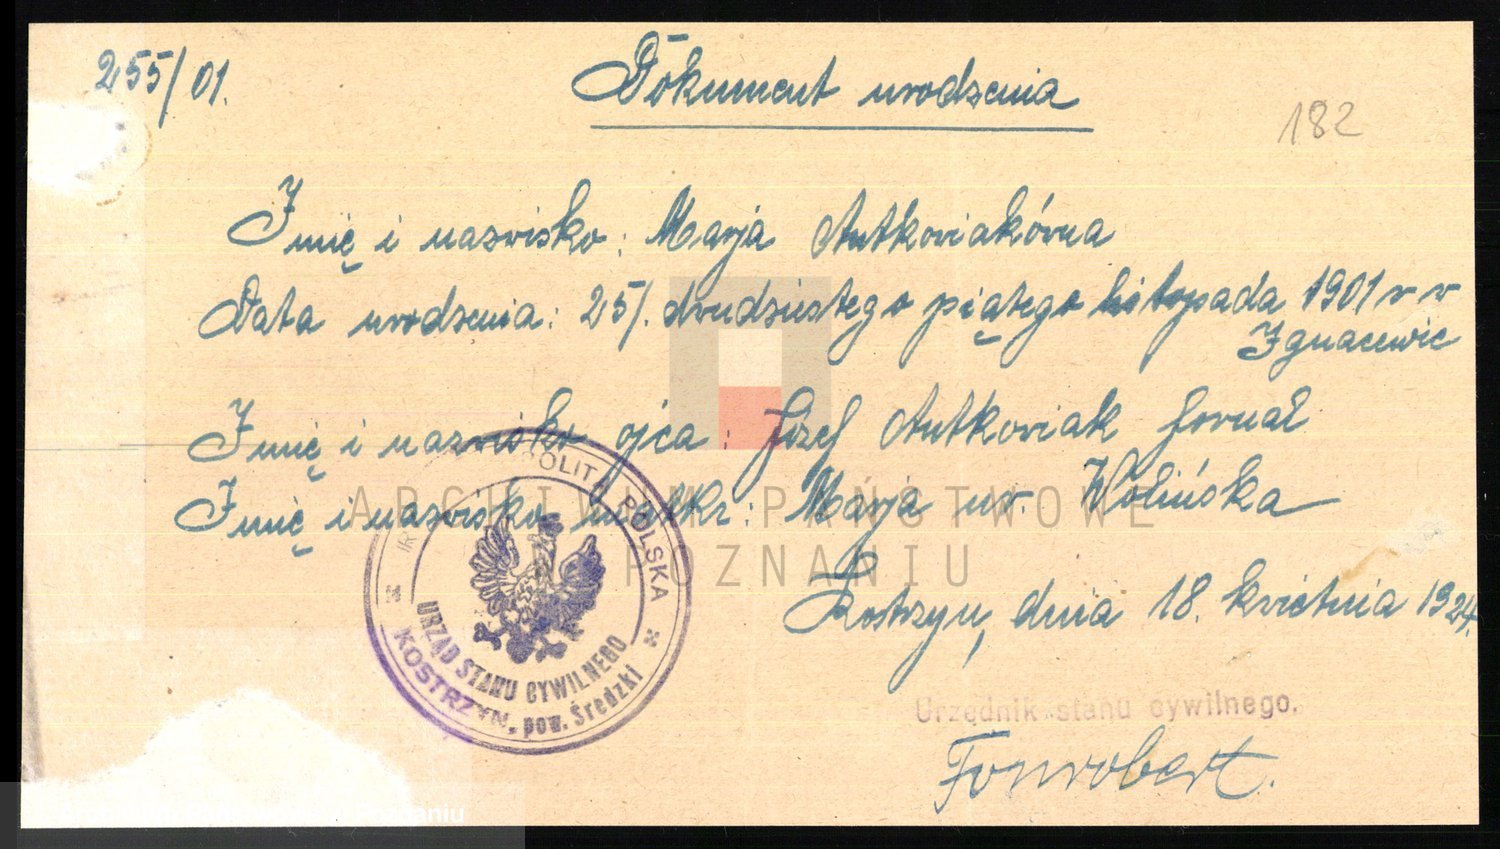 255/01.
Dokument urodzenia
182
Imię i nazwisko: Marja Antkowiakówna
Data urodzenia: 25/. dwudziestego piątego listopada 1901 r w
Ignacewie
Imię i nazwisko ojca: Józef Antkowiak fornal
Imię i nazwisko matki: Marja ur. Wolińska
Kostrzyn, dnia 18. kwietnia 1924.
POLSKA
URZĄD STANU CYWILNEGO
KOSTRZYN, pow. Średzki
Urzędnik stanu cywilnego.
Fonrobert.
ARCHIWUM PAŃSTWOWE
W POZNANIU